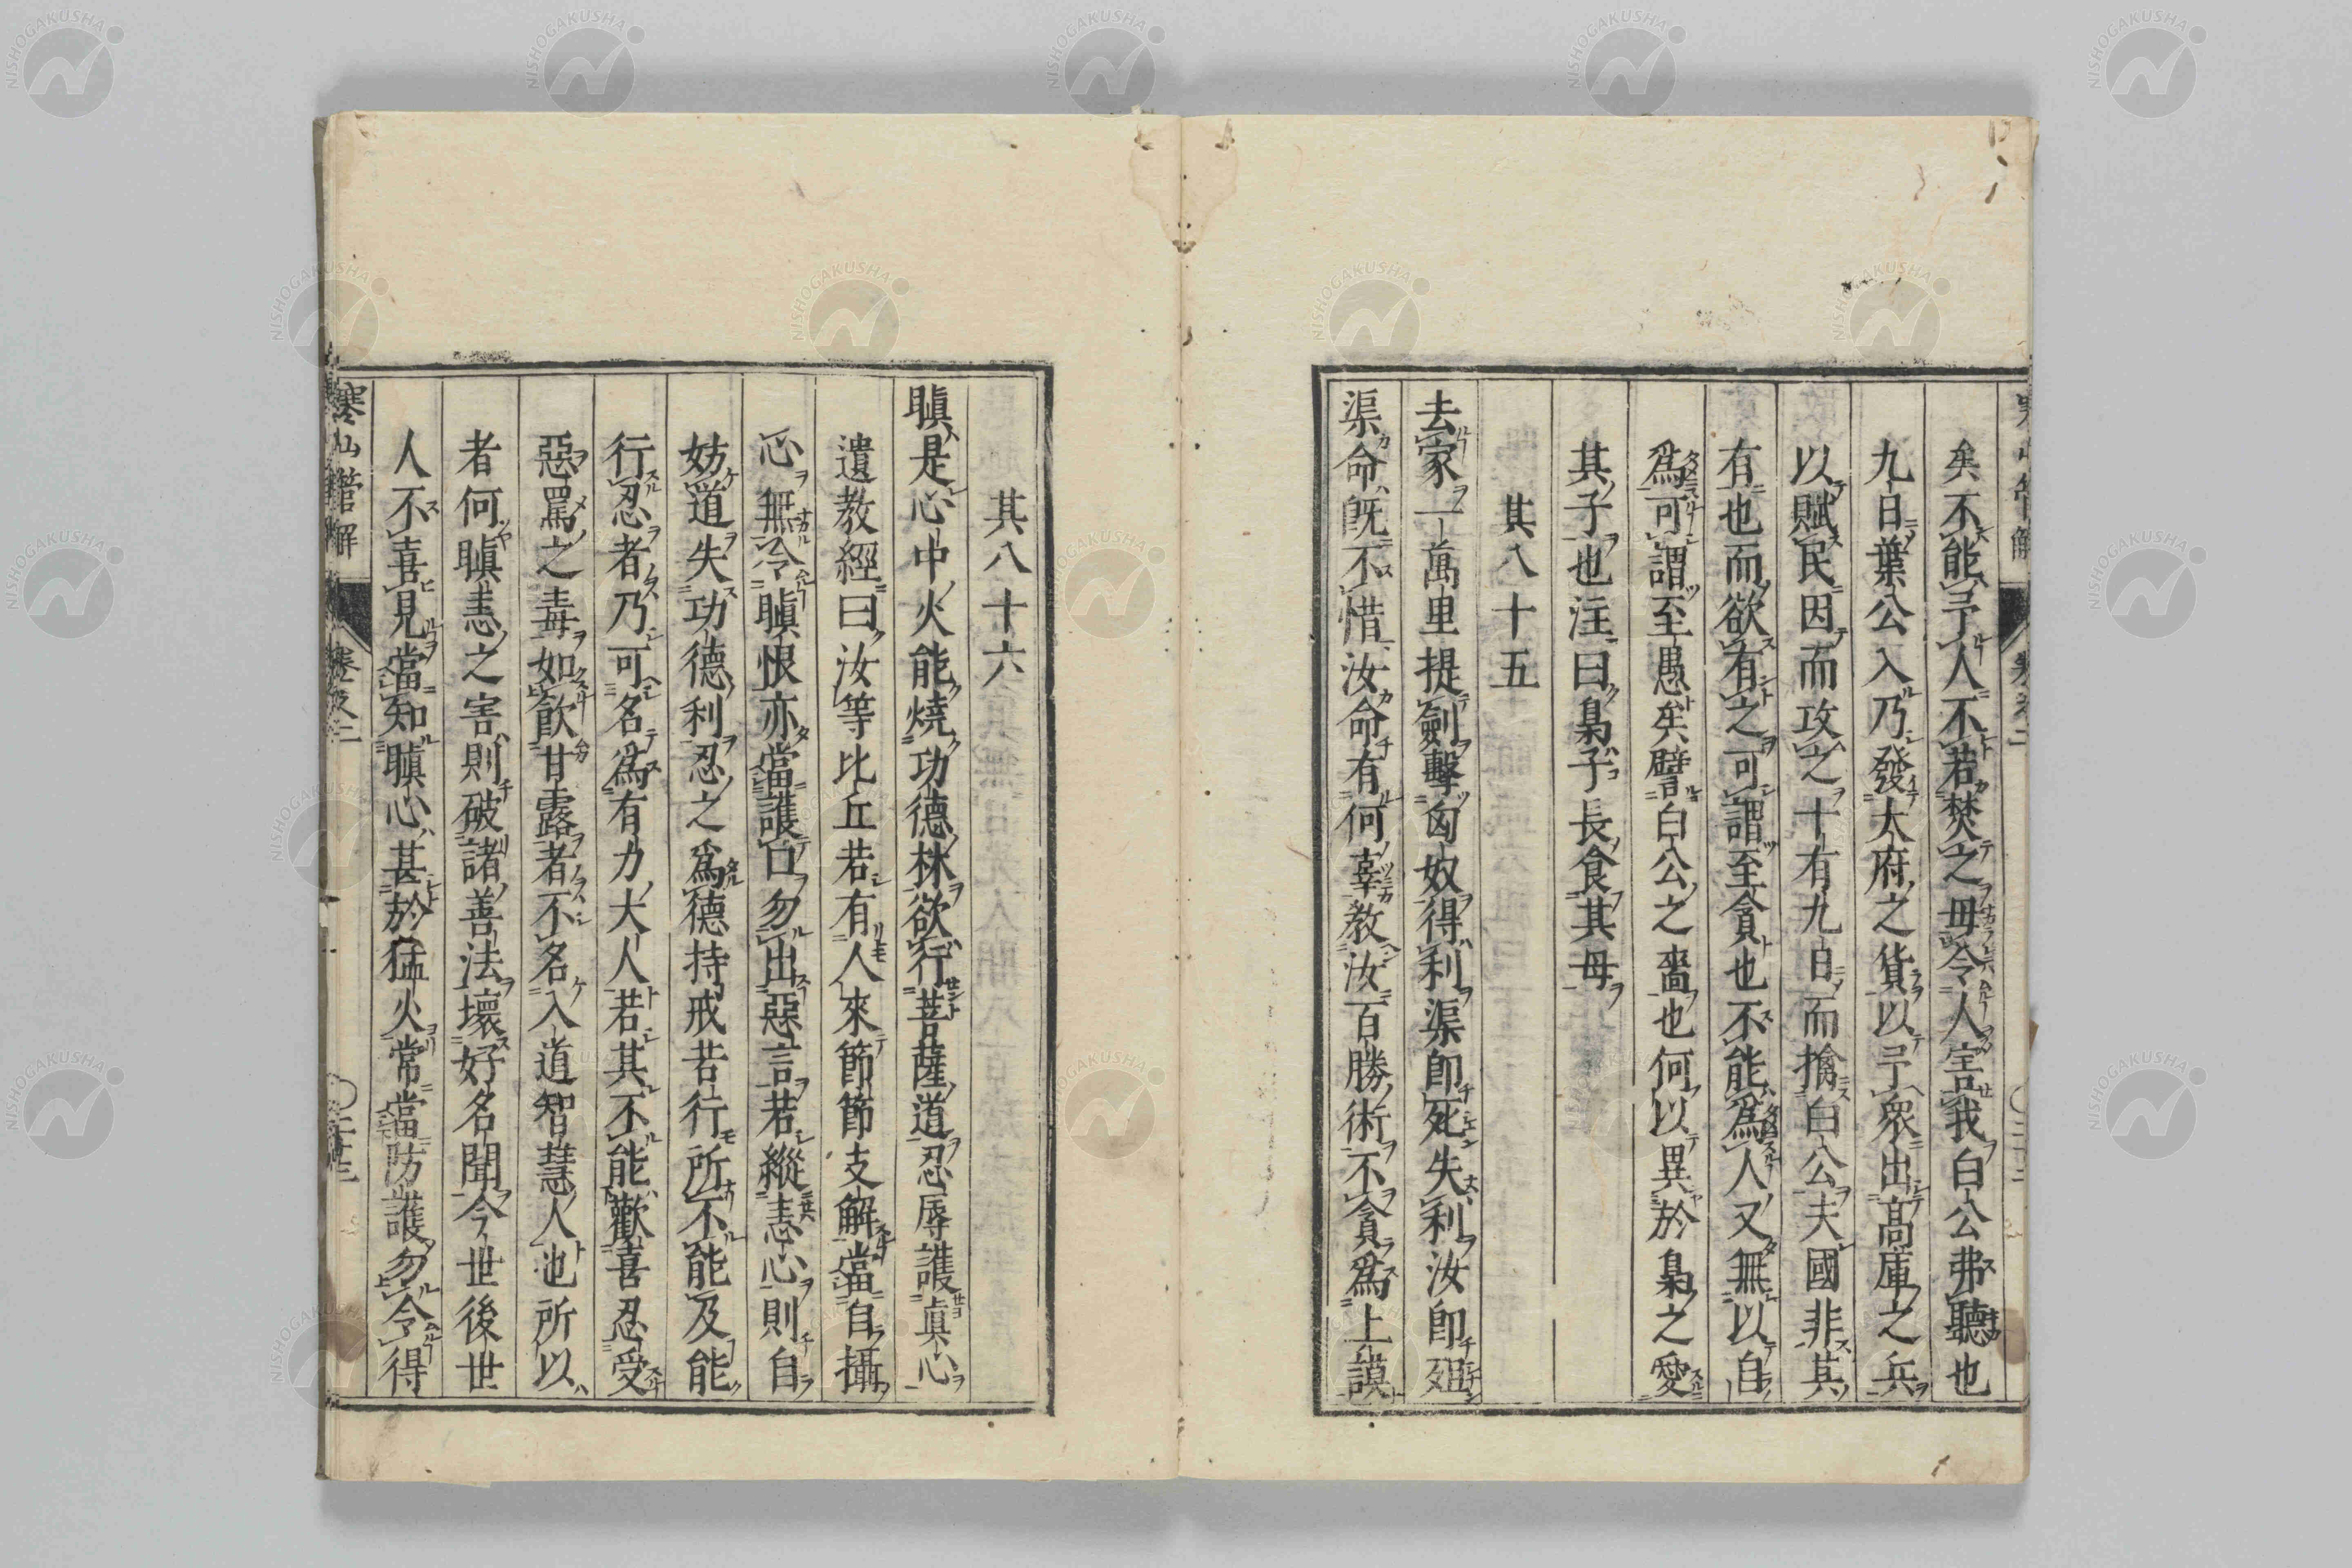 矣不能予人不若焚之毋令人害我白公弗聽也
九日葉公入乃發太府之貨以予衆出高庫之兵
以賦民因而攻之十有九日而擒白公夫國非其
有也而欲有之可謂至貪也不能爲人又無以自
爲可謂至愚矣譬白公之嗇也何以異於梟之愛
其子也注曰梟子長食其母
其八十五
去家一萬里提劍擊匈奴得利渠即死失利汝即殂
渠命既不惜汝命有何辜教汝百勝術不貪爲上謨
其八十六
瞋是心中火能燒功德林欲行菩薩道忍辱護眞心
遺教經曰汝等比丘若有人來節節支解當自攝
心無令瞋恨亦當護口勿出惡言若縱恚心則自
妨道失功德利忍之爲德持戒苦行所不能及能
行忍者乃可名爲有力大人若其不能歡喜忍受
惡罵之毒如飮甘露者不名入道智慧人也所以
者何瞋恚之害則破諸善法壞好名聞今世後世
人不喜見當知瞋心甚於猛火常當防護勿令得
寒山管解 卷之二